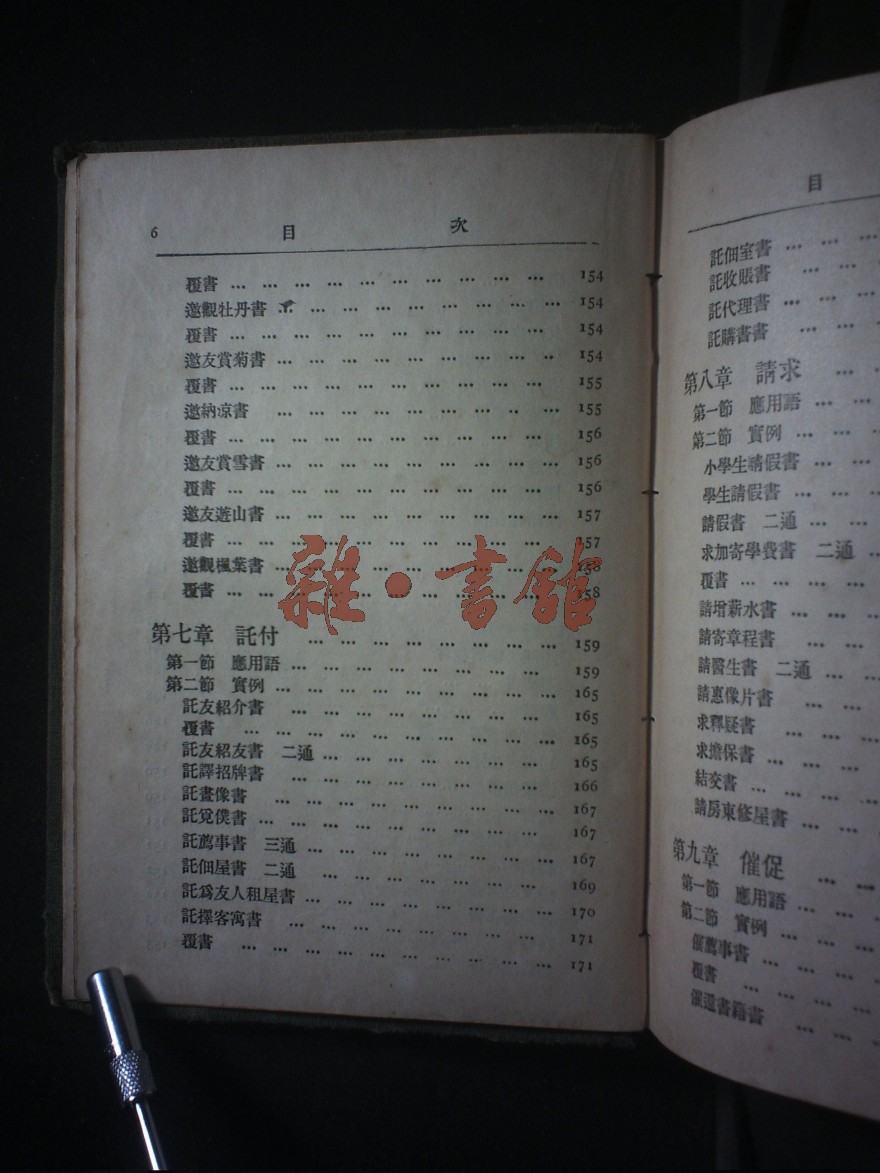 6 目 次
覆書 … … … … … … … … … … 154
邀觀牡丹書 … … … … … … … … … 154
覆書 … … … … … … … … … … 154
邀友賞菊書 … … … … … … … … … 154
覆書 … … … … … … … … … … 155
邀納凉書 … … … … … … … … … 155
覆書 … … … … … … … … … … 156
邀友賞雪書 … … … … … … … … … 156
覆書 … … … … … … … … … … 156
邀友遊山書 … … … … … … … … … 157
覆書 … … … … … … … … … … 157
邀觀楓葉書 … … … … … … … … … 158
覆書 … … … … … … … … … … 158
第七章 託付 … … … … … … … … 159
第一節 應用語 … … … … … … … … … 159
第二節 實例 … … … … … … … … … 165
託友紹介書 … … … … … … … … 165
覆書 … … … … … … … … … 165
託友紹友書 二通 … … … … … … … 165
託譯招牌書 … … … … … … … … 166
託畫像書 … … … … … … … … … 167
託覓僕書 … … … … … … … … … 167
託薦事書 三通 … … … … … … … … 167
託佃屋書 二通 … … … … … … … 169
託爲友人租屋書 … … … … … … … … 170
託擇客寓書 … … … … … … … … 171
覆書 … … … … … … … … … … 171
雜·書館
目
託佃室書 … … …
託收賬書 … …
託代理書 … … …
託購書書 … …
第八章 請求 … …
第一節 應用語 … …
第二節 實例 … … …
小學生請假書 … …
學生請假書 … …
請假書 二通 … …
求加寄學費書 二通 …
覆書 … … …
請增薪水書 … …
請寄章程書 … …
請醫生書 二通 …
請惠像片書 … …
求釋疑書 … …
求擔保書 … … …
結交書 … … …
請房東修屋書 … …
第九章 催促 … …
第一節 應用語 … …
第二節 實例 … … …
催薦事書 … …
覆書 … … …
催還書籍書 … …